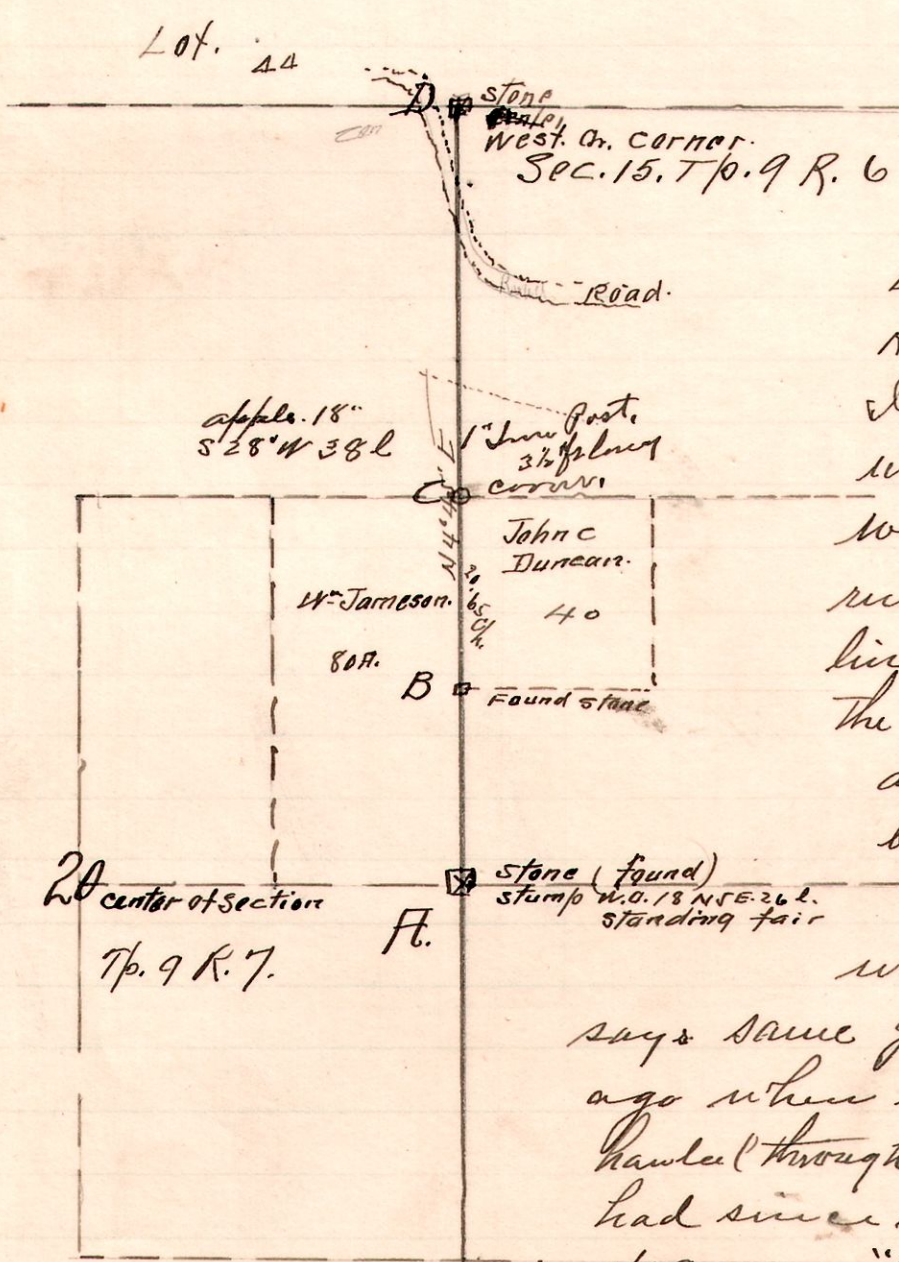 Lot. 44
D
stone
West. Qr. Corner.
Sec. 15. Tp. 9 R. 6
Road
Road.
apple. 18"
S 28° W 38 l
Post,
3½
corner.
C
John C
Duncan.
40
20.65 Ch.
Wm Jameson.
80 A.
B
Found stone
20
center of section
Tp. 9 R. 7.
A.
stone (found)
stump W.O. 18 N 5 E. 26 l.
standing fair
the
says same
ago when
hauled (through
had since